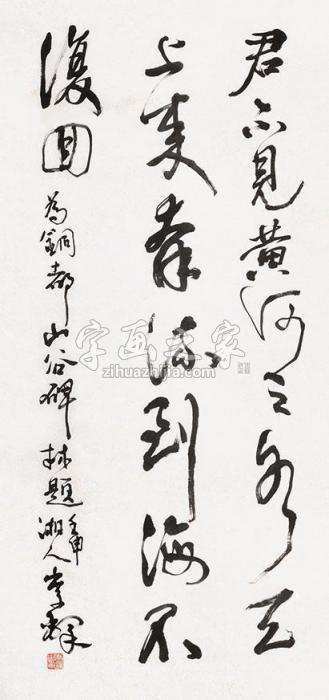 君不見黄河之水天
上來奔流到海不
復回
為銅都山谷碑林題
壬申
湘人李鐸
字画专家
zihuazhijia.com